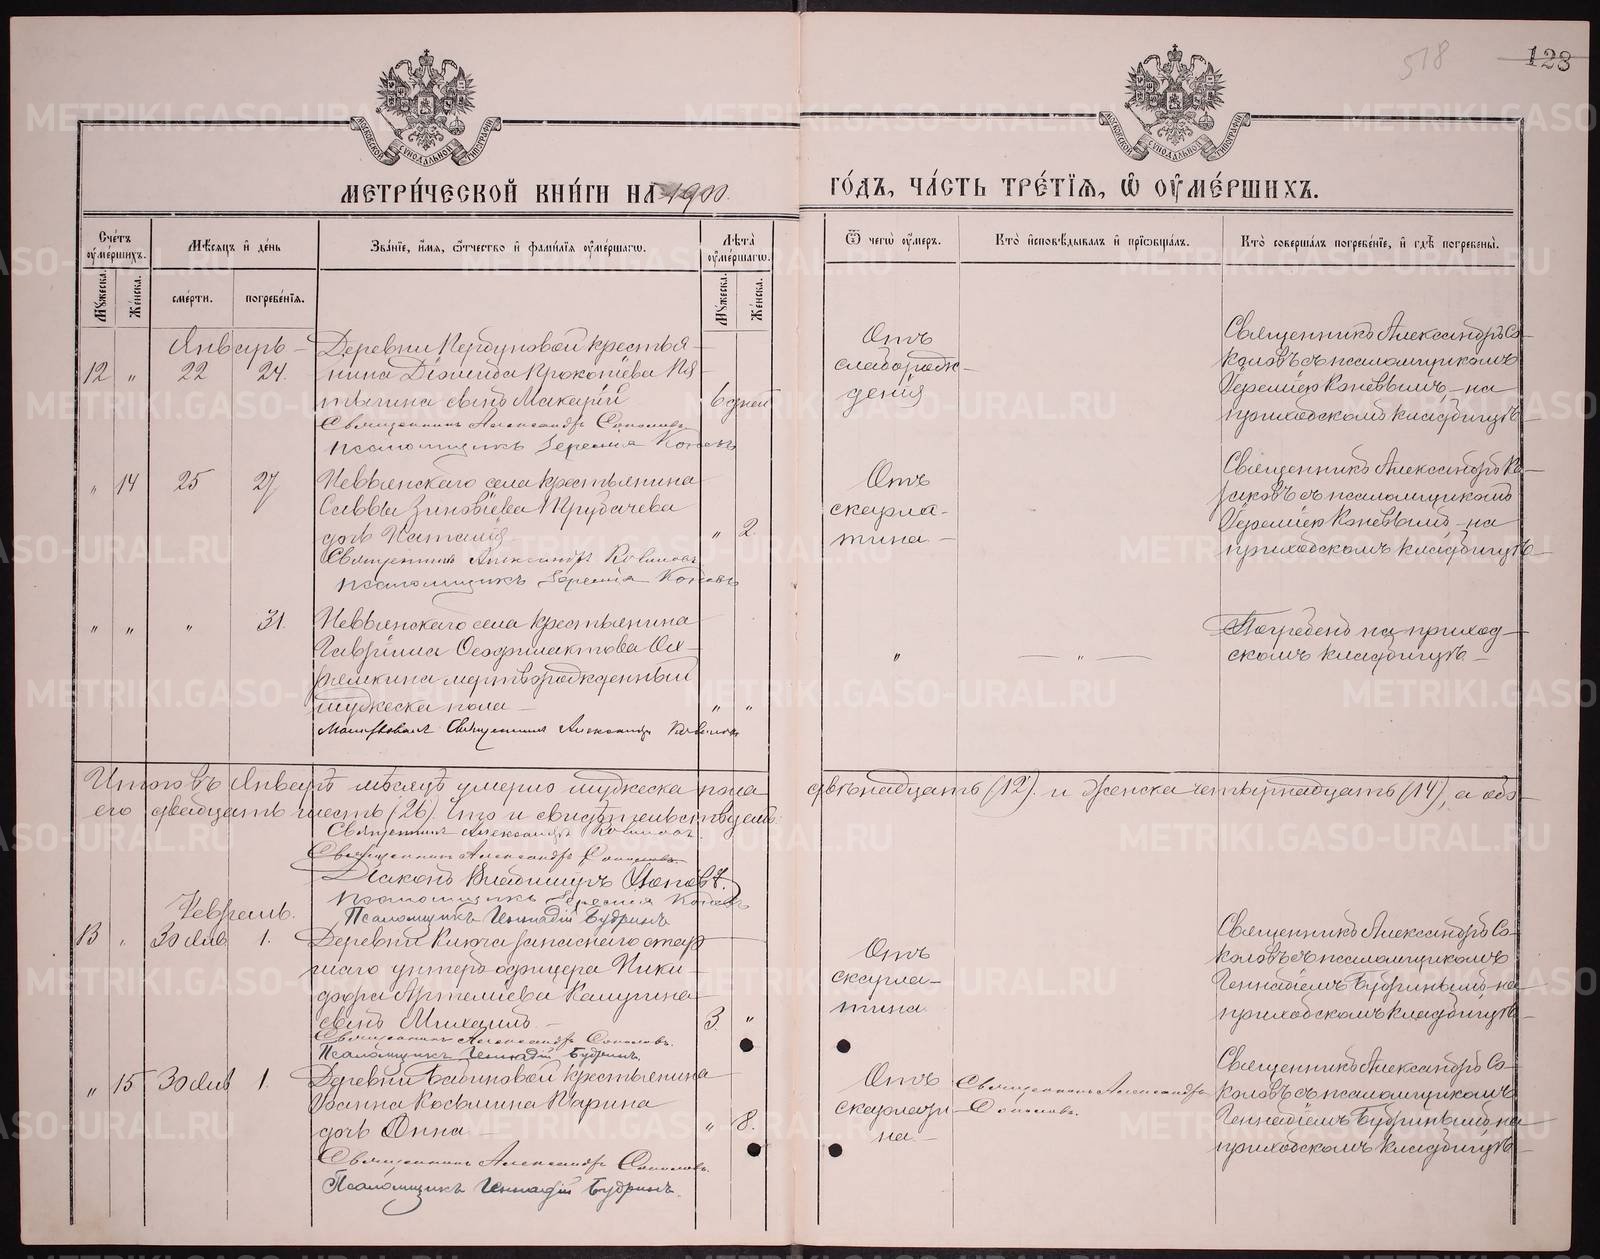 518
123
МЕТРИ́ЧЕСКОЙ КНИ́ГИ НА 1900.
ГО́ДЪ, ЧА́СТЬ ТРЕ́ТIѦ, Ѡ҆ ОУ҆МЕ́РШИХЪ.
Сче́тъ оу҆ме́ршихъ.
Мꙋ́жеска.
Же́нска.
Мѣ́сяцъ и҆ де́нь
сме́рти.
погребе́нїѧ.
Зва́нїе, и҆́мѧ, ѻ҆́тчество и҆ фами́лїѧ оу҆ме́ршагѡ.
Лѣ́та оу҆ме́ршагѡ.
Мꙋ́жеска.
Же́нска.
Ѿ чегѡ̀ оу҆́меръ.
Кто̀ и҆сповѣ́дывалъ и҆ прїѡбща́лъ.
Кто̀ соверша́лъ погребе́нїе, и҆ гдѣ̀ погребены̀.
Январь
12 " 22 24.
Деревни крестья-
нина Діомида Прокопіева Пя-
тыгина сынъ Макарій
6 дней
Священникъ Александръ Соколовъ
Псаломщикъ Іеремія Коневъ
Отъ
слаборож-
денія
Священникъ Александръ Со-
коловъ съ псаломщикомъ
Іереміею Коневымъ на
приходскомъ кладбищѣ
" 14 25 27
Невьянскаго села крестьянина
Саввы Зиновіева Трубачева
дочь Наталія
" 2.
Священникъ Александръ
Псаломщикъ Іеремія Коневъ
Отъ
скарла-
тина
Священникъ Александръ
съ псаломщикомъ
Іереміею Коневымъ на
приходскомъ кладбищѣ
" " " 31.
Невьянскаго села крестьянина
Гавріила Ѳеофилактова
мертворожденный
мужеска пола
" "
Священникъ Александръ
"
"
Погребенъ на приход-
скомъ кладбищѣ
Итого въ Январѣ мѣсяцѣ умерло мужеска пола двѣнадцать (12). и женска четырнадцать (14), а обо-
его двадцать шесть (26). Что и свидѣтельствуемъ:
Священникъ Александръ
Священникъ Александръ Соколовъ.
Діаконъ Владиміръ Поповъ.
Псаломщикъ Іеремія Коневъ
Псаломщикъ Геннадій Будринъ
Февраль.
13 " 30 янв 1.
Деревни Ключа запаснаго стар-
шаго унтеръ офицера Ники-
фора Артеміева Калугина
сынъ Михаилъ
3. "
Священникъ Александръ Соколовъ.
Псаломщикъ Геннадій Будринъ.
Отъ
скарла-
тина
Священникъ Александръ Со-
коловъ съ псаломщикомъ
Геннадіемъ Будринымъ на
приходскомъ кладбищѣ
" 15 30 янв 1.
Деревни Бабиновой крестьянина
Іоанна Косьмина Ларина
дочь Анна
" 8.
Священникъ Александръ Соколовъ.
Псаломщикъ Геннадій Будринъ.
Отъ
скарлати-
на
Священникъ Александръ
Соколовъ.
Священникъ Александръ Со-
коловъ съ псаломщикомъ
Геннадіемъ Будринымъ на
приходскомъ кладбищѣ
METRIKI.GASO-URAL.RU